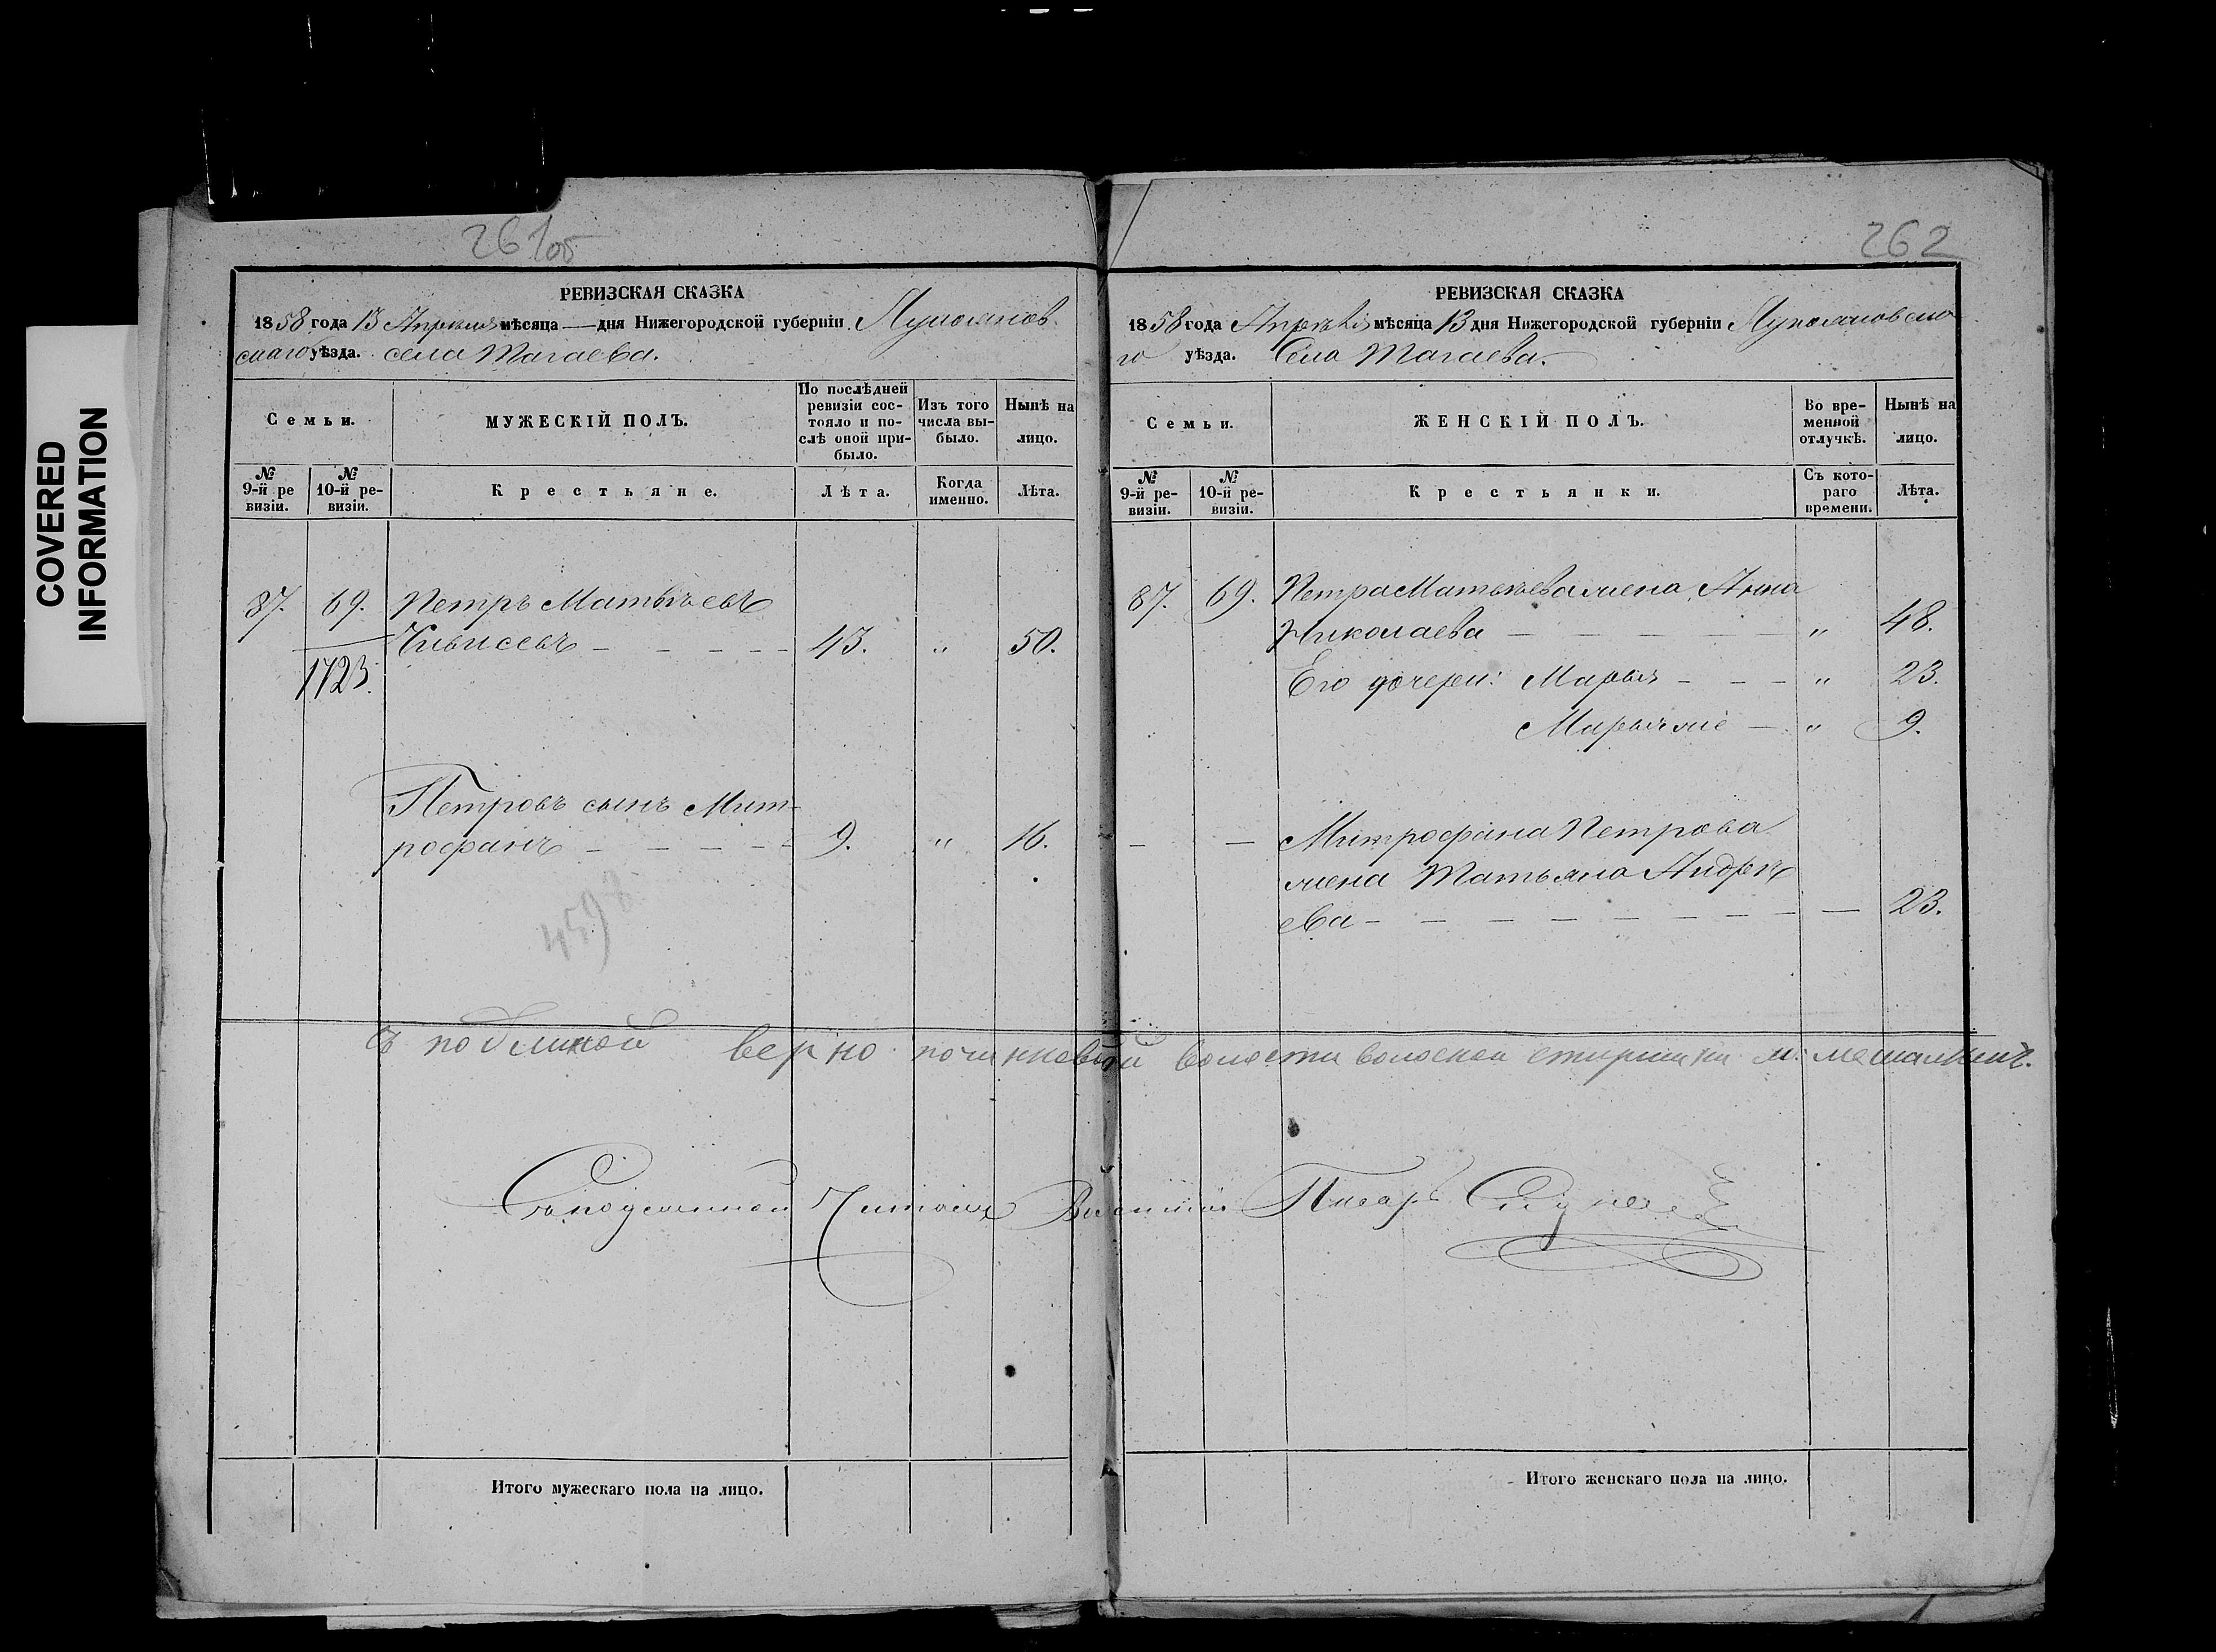 COVERED
INFORMATION
261об
РЕВИЗСКАЯ СКАЗКА
1858 года 13 Апреля мѣсяца — дня Нижегородской губерніи. Лукоянов
скаго уѣзда. села Тагаева.
Семьи.
МУЖЕСКІЙ ПОЛЪ.
По послѣдней ревизіи состояло и послѣ оной прибыло.
Изъ того числа выбыло.
Нынѣ на лицо.
№ 9-й ревизіи.
№ 10-й ревизіи.
Крестьяне.
Лѣта.
Когда именно.
Лѣта.
87. 69. Петръ Матвѣевъ
— — — — 43. „ 50.
1723.
Петровъ сынъ Мит-
рофанъ — — — — 9. „ 16.
459
262
РЕВИЗСКАЯ СКАЗКА
1858 года Апрѣля мѣсяца 13 дня Нижегородской губерніи Лукояновска
го уѣзда. Села Тагаева.
Семьи.
ЖЕНСКІЙ ПОЛЪ.
Во временной отлучкѣ.
Нынѣ на лицо.
№ 9-й ревизіи.
№ 10-й ревизіи.
Крестьянки.
Съ котораго времени.
Лѣта.
87. 69. Петра Матвѣева жена Анна
Николаева — — — „ 48.
Его дочери: Марья — — — „ 23.
Марья же — „ 9.
— — Митрофана Петрова
жена Татьяна Андрѣ
ева — — — — — — — — 23.
съ подлиной верно починковской волости волосной старшина М.
Съ подлинной Читалъ Волостной Писарь
Итого мужескаго пола на лицо.
Итого женскаго пола на лицо.